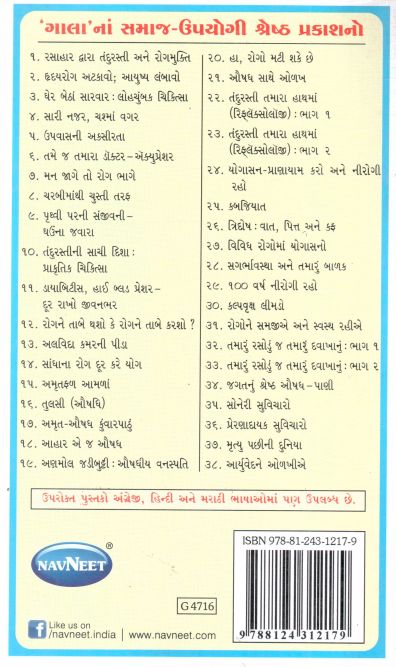 'ગાલા'નાં સમાજ-ઉપયોગી શ્રેષ્ઠ પ્રકાશનો
૧. રસાહાર દ્વારા તંદુરસ્તી અને રોગમુક્તિ
૨. હૃદયરોગ અટકાવો; આયુષ્ય લંબાવો
૩. ઘેર બેઠાં સારવાર : લોહચુંબક ચિકિત્સા
૪. સારી નજર, ચશ્માં વગર
૫. ઉપવાસની અકસીરતા
૬. તમે જ તમારા ડૉક્ટર-ઍક્યુપ્રેશર
૭. મન જાગે તો રોગ ભાગે
૮. ચરબીમાંથી ચુસ્તી તરફ
૯. પૃથ્વી પરની સંજીવની–
ઘઉંના જવારા
૧૦. તંદુરસ્તીની સાચી દિશા :
પ્રાકૃતિક ચિકિત્સા
૧૧. ડાયાબિટીસ, હાઈ બ્લડ પ્રેશર–
દૂર રાખો જીવનભર
૧૨. રોગને તાબે થશો કે રોગને તાબે કરશો ?
૧૩. અલવિદા કમરની પીડા
૧૪. સાંધાના રોગ દૂર કરે યોગ
૧૫. અમૃતફળ આમળાં
૧૬. તુલસી (ઔષધિ)
૧૭. અમૃત-ઔષધ કુંવારપાઠું
૧૮. આહાર એ જ ઔષધ
૧૯. અણમોલ જડીબુટ્ટી : ઔષધીય વનસ્પતિ
૨૦. હા, રોગો મટી શકે છે
૨૧. ઔષધ સાથે ઓળખ
૨૨. તંદુરસ્તી તમારા હાથમાં
(રિફ્લૅક્સોલૉજી) : ભાગ ૧
૨૩. તંદુરસ્તી તમારા હાથમાં
(રિફ્લૅક્સોલૉજી) : ભાગ ૨
૨૪. યોગાસન-પ્રાણાયામ કરો અને નીરોગી
રહો
૨૫. કબજિયાત
૨૬. ત્રિદોષ : વાત, પિત્ત અને કફ
૨૭. વિવિધ રોગોમાં યોગાસનો
૨૮. સગર્ભાવસ્થા અને તમારું બાળક
૨૯. ૧૦૦ વર્ષ નીરોગી રહો
૩૦. કલ્પવૃક્ષ લીમડો
૩૧. રોગોને સમજીએ અને સ્વસ્થ રહીએ
૩૨. તમારું રસોડું જ તમારું દવાખાનું : ભાગ ૧
૩૩. તમારું રસોડું જ તમારું દવાખાનું : ભાગ ૨
૩૪. જગતનું શ્રેષ્ઠ ઔષધ-પાણી
૩૫. સોનેરી સુવિચારો
૩૬. પ્રેરણાદાયક સુવિચારો
૩૭. મૃત્યુ પછીની દુનિયા
૩૮. આર્યુવેદને ઓળખીએ
ઉપરોક્ત પુસ્તકો અંગ્રેજી, હિન્દી અને મરાઠી ભાષાઓમાં પણ ઉપલબ્ધ છે.
NAVNEET ®
Like us on
/navneet.india | www.navneet.com
G 4716
ISBN 978-81-243-1217-9
9 788124 312179